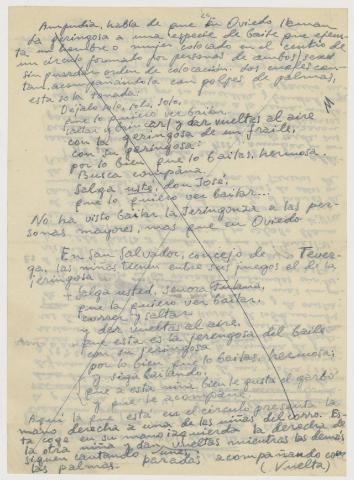 Ampudia, habla de que en Oviedo llaman
La Jeringosa a una especie de baile que ejecu-
ta un hombre o mujer colocado en el centro de
un circulo formado por personas de ambos sexos
sin guardar orden de colocación, los cuales can-
tan, acompañandola con golpes de palmas,
esta sola tonada:
Dejalo solo, solo, solo,
que lo quiero ver bailar,
saltar y brincar y dar vueltas al aire
con la geringosa de un fraile,
con su geringosa:
por lo bien que lo bailas, hermosa.
Busca compaña.
Salga usté, don José,
que lo quiero ver bailar...
No ha visto bailar la Jeringonza a las per-
sonas mayores, mas que en Oviedo
En San Salvador, concejo de Tever-
ga, las niñas tienen entre sus juegos el de la
jeringosa:
Salga usted, señora Fulana,
que la quiero ver bailar,
correr y saltar
y dar vueltas al aire,
que esta es la jerengosa del baile
con su jeringosa
por lo bien que lo bailas, hermosa;
y siga bailando,
que a esta niña bien le gusta el garbo
y que le acompañe
Aqui la que está en el circulo presenta la
mano derecha a una de las niñas del corro. Es-
ta coge en su mano izquierda la derecha de
la otra niña y dan vueltas mientras las demás
siguen cantando paradas acompañando con
las palmas. (Vuelta)